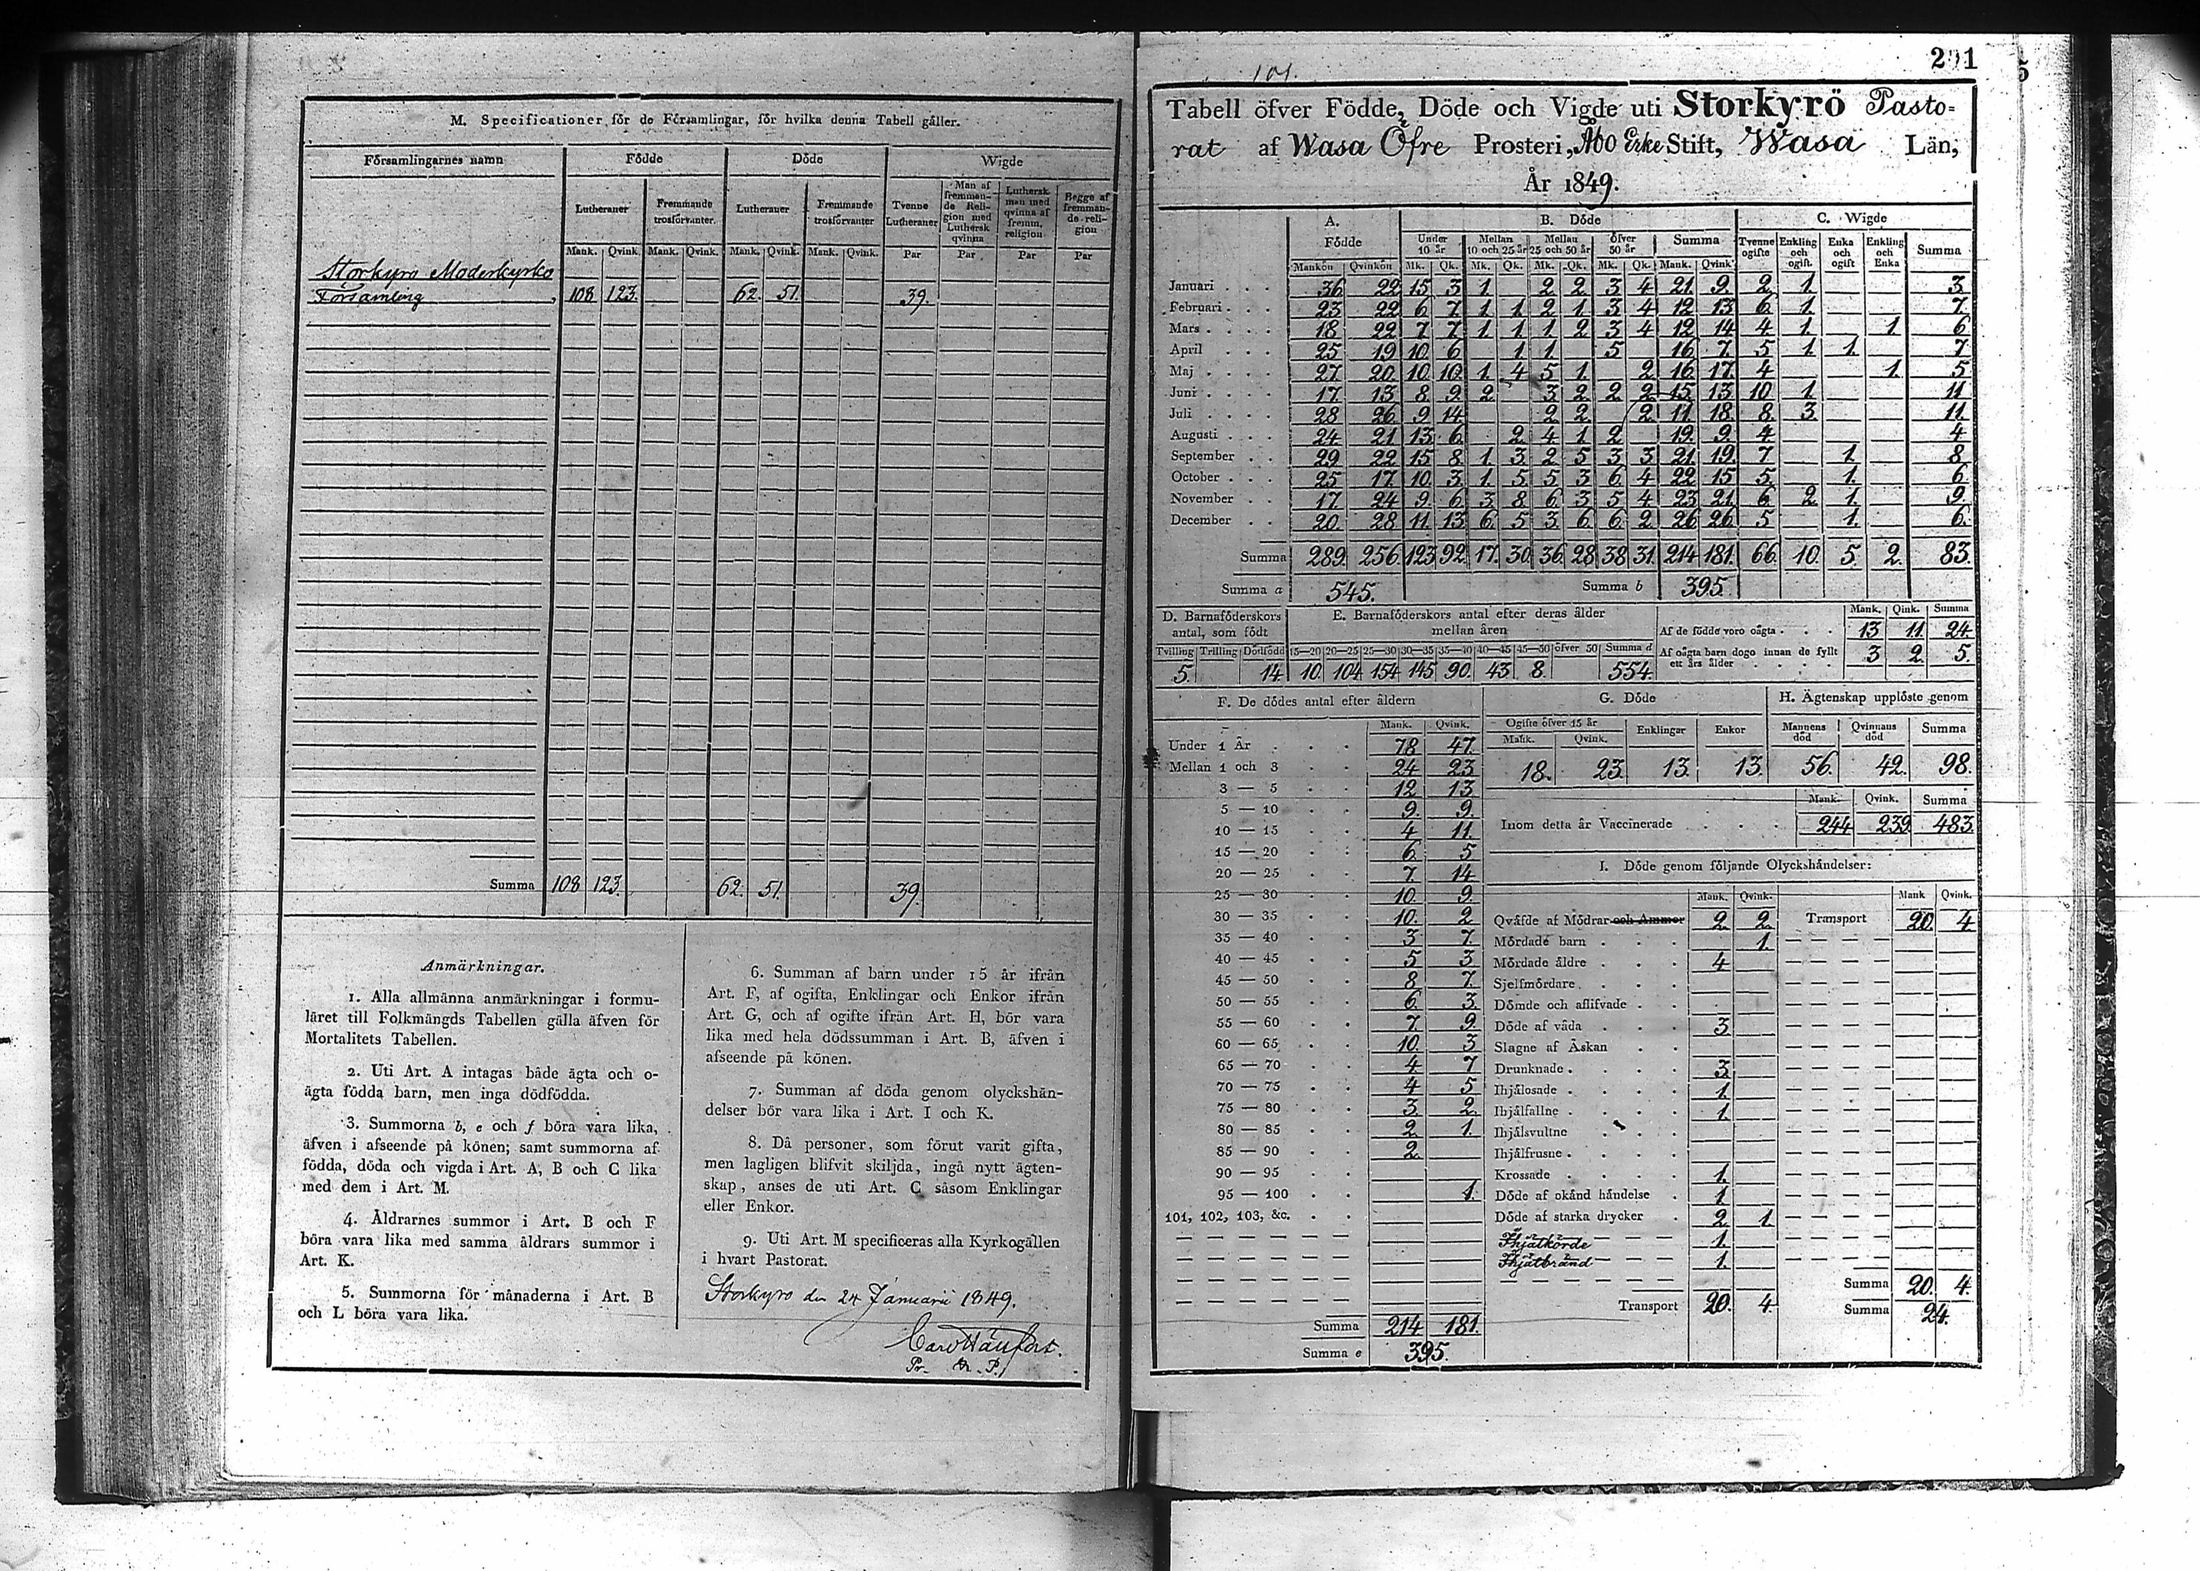 M. Specificationer för de Församlingar, för hvilka denna Tabell gäller.
Församlingarnes namn Födde Döde Wigde
Lutheraner Fremmande trosförvanter. Lutheraner Fremmande trosförvanter Tvenne Lutheraner Man af fremmande Religion med Luthersk qvinna Luthersk man med qvinna af fremm. religion Begge af fremmande religion
Mank. Qvink. Mank. Qvink. Mank. Qvink. Mank. Qvink. Par Par Par Par
Storkyro Moderkyrko
Församling 108 123. 62. 51. 39.
Summa 108 123. 62. 51. 39.
Anmärkningar.
1. Alla allmänna anmärkningar i formu-
läret till Folkmängds Tabellen gälla äfven för
Mortalitets Tabellen.
2. Uti Art. A intagas både ägta och o-
ägta födda barn, men inga dödfödda.
3. Summorna b, e och f böra vara lika,
äfven i afseende på könen; samt summorna af
födda, döda och vigda i Art. A, B och C lika
med dem i Art. M.
4. Åldrarnes summor i Art. B och F
böra vara lika med samma åldrars summor i
Art. K.
5. Summorna för månaderna i Art. B
och L böra vara lika.
6. Summan af barn under 15 år ifrån
Art. F, af ogifta, Enklingar och Enkor ifrån
Art. G, och af ogifte ifrån Art. H, bör vara
lika med hela dödssumman i Art. B, äfven i
afseende på könen.
7. Summan af döda genom olyckshän-
delser bör vara lika i Art. I och K.
8. Då personer, som förut varit gifta,
men lagligen blifvit skiljda, ingå nytt ägten-
skap, anses de uti Art. C såsom Enklingar
eller Enkor.
9. Uti Art. M specificeras alla Kyrkogällen
i hvart Pastorat.
Storkyro den 24 Januarii 1849.
201
101.
Tabell öfver Födde, Döde och Vigde uti Storkyrö Pasto-
rat af Wasa Öfre Prosteri, Åbo Erke Stift, Wasa Län,
År 1849.
A. B. Döde C. Wigde
Födde Under 10 år Mellan 10 och 25 år Mellan 25 och 50 år Öfver 50 år Summa Tvenne ogifte Enkling och ogift. Enka och ogift Enkling och Enka Summa
Mankön Qvinkön Mk. Qk. Mk. Qk. Mk. Qk. Mk. Qk. Mank. Qvink
Januari 36 22 15 3 1 2 2 3 4 21 9 2 1 3
Februari 23 22 6 7 1 1 2 1 3 4 12 13 6 1 7
Mars 18 22 7 7 1 1 1 2 3 4 12 14 4 1 1 6
April 25 19 10 6 1 1 5 16 7 5 1 1 7
Maj 27 20 10 10 1 4 5 1 2 16 17 4 1 5
Juni 17 13 8 9 2 3 2 2 2 15 13 10 1 11
Juli 28 26 9 14 2 2 2 11 18 8 3 11
Augusti 24 21 13 6 2 4 1 2 19 9 4 4
September 29 22 15 8 1 3 2 5 3 3 21 19 7 1 8
October 25 17 10 3 1 5 5 3 6 4 22 15 5 1 6
November 17 24 9 6 3 8 6 3 5 4 23 21 6 2 1 9
December 20 28 11 13 6 5 3 6 6 2 26 26 5 1 6
Summa 289. 256. 123 92. 17. 30. 36. 28. 38 31. 214 181. 66. 10. 5 2. 83.
Summa a 545. Summa b 395.
D. Barnaföderskors antal, som födt
Tvilling Trilling Dödfödd
5. 14
E. Barnaföderskors antal efter deras ålder
mellan åren
15—20 20—25 25—30 30—35 35—40 40—45 45—50 öfver 50 Summa d
10. 104 154 145 90. 43 8. 554.
Mank. Qink. Summa
Af de födde voro oägta 13 11. 24.
Af oägta barn dogo innan de fyllt
ett års ålder 3 2. 5.
F. De dödes antal efter åldern
Mank. Qvink.
Under 1 År 78 47.
Mellan 1 och 3 24 23
3 — 5 12 13
5 — 10 9. 9.
10 — 15 4 11.
15 — 20 6. 5
20 — 25 7. 14
25 — 30 10. 9.
30 — 35 10. 2
35 — 40 3 7.
40 — 45 5 3
45 — 50 8 7.
50 — 55 6 3.
55 — 60 7. 9
60 — 65 10. 3
65 — 70 4 7
70 — 75 4 5
75 — 80 3 2.
80 — 85 2 1.
85 — 90 2
90 — 95
95 — 100 1.
101, 102, 103, &c.
Summa 214 181.
Summa e 395.
G. Döde
Ogifte öfver 15 år Enklingar Enkor
Mank. Qvink.
18. 23. 13. 13.
H. Ägtenskap upplöste genom
Mannens död Qvinnans död Summa
56. 42. 98.
Mank. Qvink. Summa
Inom detta år Vaccinerade 244 239. 483.
I. Döde genom följande Olyckshändelser:
Mank. Qvink. Mank Qvink.
Qväfde af Mödrar och Ammor 2. 2. Transport 20. 4
Mördade barn 1.
Mördade äldre 4
Sjelfmördare
Dömde och aflifvade
Döde af våda 3
Slagne af Åskan
Drunknade 3
Ihjälosade 1.
Ihjälfallne 1.
Ihjälsvultne
Ihjälfrusne
Krossade 1.
Döde af okänd händelse 1
Döde af starka drycker 2 1.
Ihjälkörde 1.
Ihjälbränd 1.
Summa 20. 4.
Transport 20. 4 Summa 24.